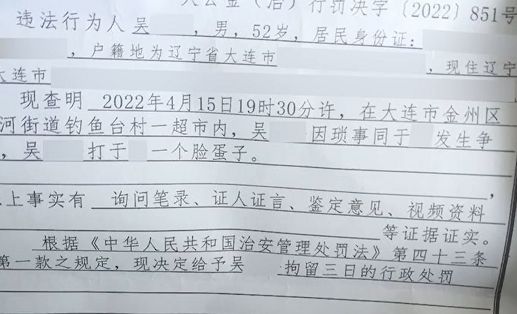 大公金（治）行罚决字〔2022〕851号
违法行为人吴 ，男，52岁，居民身份证：
，户籍地为辽宁省大连市 ，现住辽宁
大连市
现查明 2022年4月15日19时30分许，在大连市金州区
河街道钓鱼台村一超市内，吴 因琐事同于 发生争
，吴 打于 一个脸蛋子。
上事实有 询问笔录、证人证言、鉴定意见、视频资料
等证据证实。
根据《中华人民共和国治安管理处罚法》第四十三条
第一款之规定，现决定给予吴 拘留三日的行政处罚